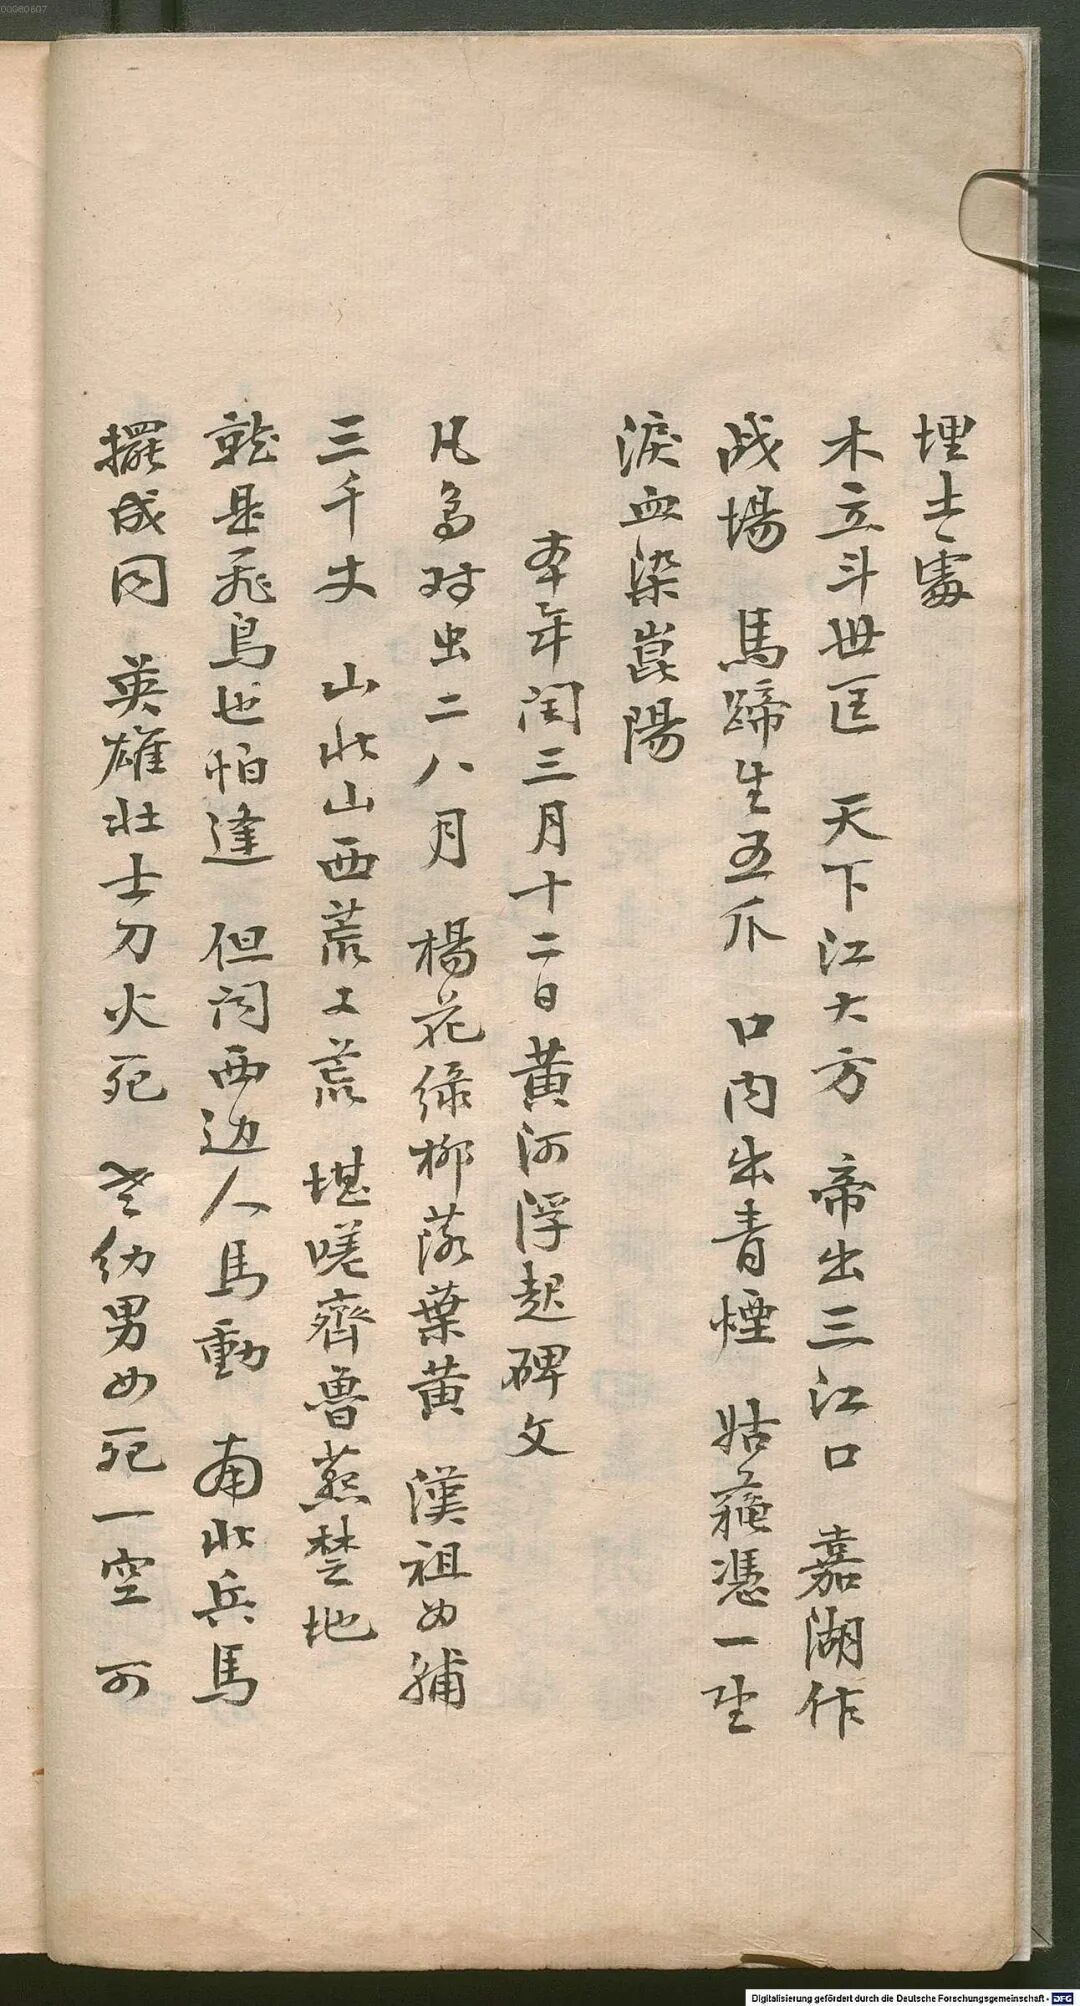 埋士處
木立斗世匡　天下江大方　帝出三江口　嘉湖作
战場　馬蹄生五爪　口内出青煙　姑蘓憑一坐
淚血染崑陽
本年闰三月十二日黄河浮起碑文
凡鳥对虫二八月　楊花绿柳落葉黄　漢祖女補
三千丈　山北山西荒又荒　堪嗟齊魯燕楚地
就是飛鳥也怕逢　但闻西边人馬動　南北兵馬
擺成同　英雄壮士刀火死　老幼男女死一空　可
00060607
Digitalisierung gefördert durch die Deutsche Forschungsgemeinschaft - DFG